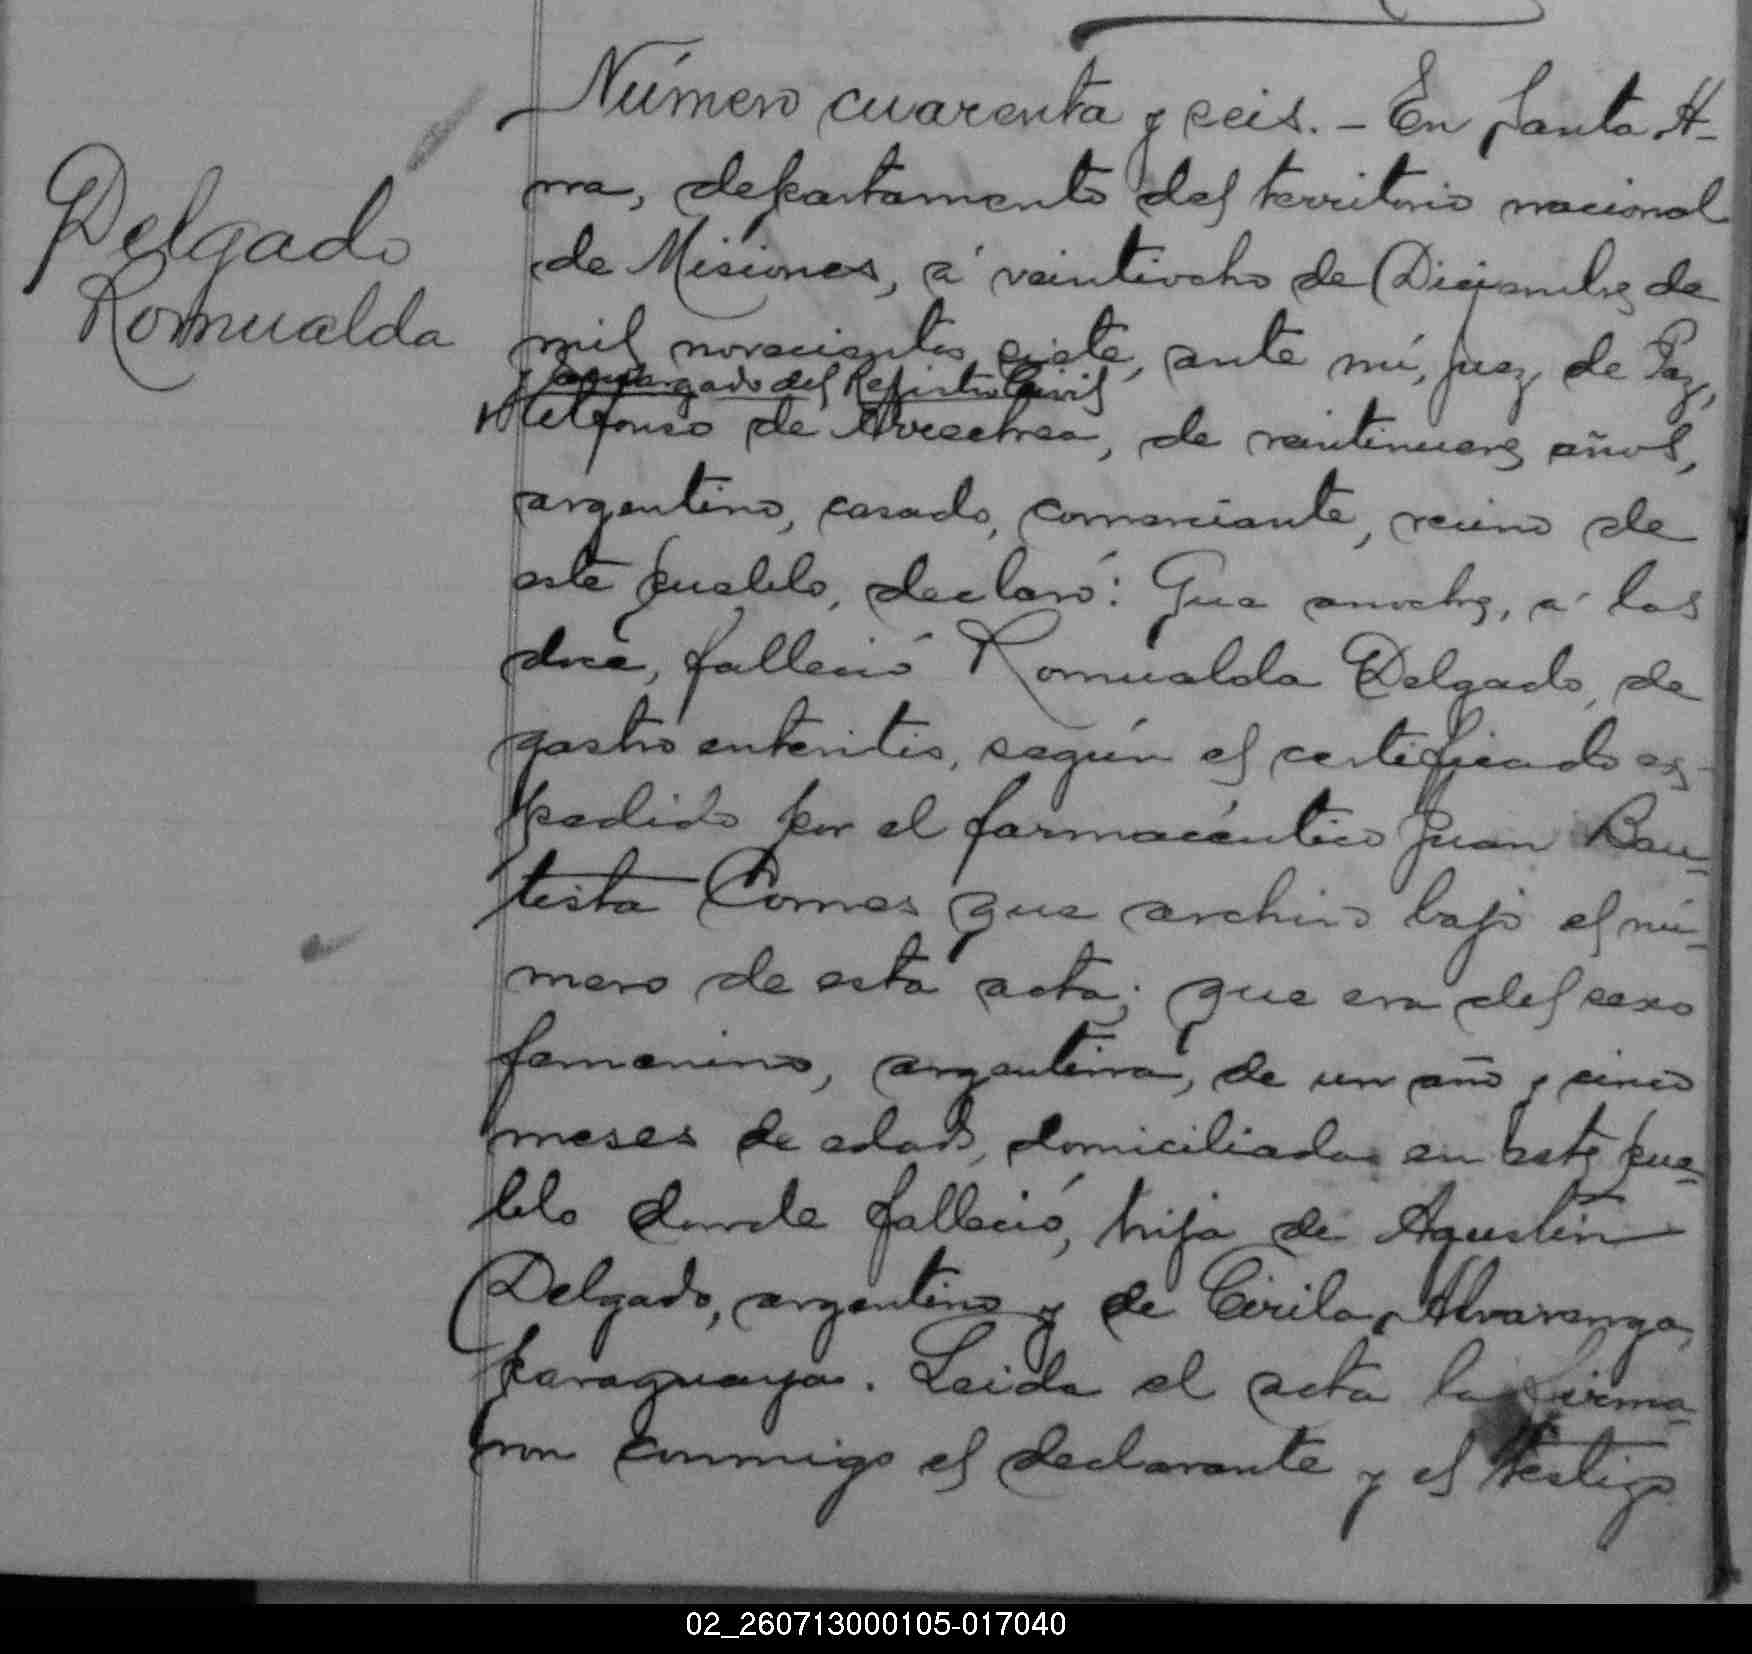 Delgado
Romualda
Número cuarenta y seis. - En Santa A-
na, departamento del territorio nacional
de Misiones, á veintiocho de Diciembre de
mil novecientos siete, ante mí, Juez de Paz,
y Encargado del Registro Civil
Ildefonso de Arrechea, de veintinueve años,
argentino, casado, comerciante, vecino de
este pueblo, declaró: Que anoche, á las
doce, falleció Romualda Delgado, de
gastro enteritis, según el certificado ex-
pedido por el farmacéutico Juan Bau-
tista Comas que archivo bajo el nú-
mero de esta acta; que era del sexo
femenino, argentina, de un año y cinco
meses de edad, domiciliada en este pue-
blo donde falleció, hija de Agustín
Delgado, argentino y de Cirila Alvarenga,
paraguaya. Leida el acta la firma-
ron conmigo el declarante y el testigo
02_260713000105-017040